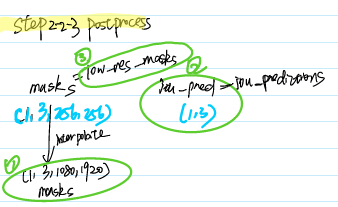 Step 2-2-3 postprocess
③
masks = low_res_masks
②
iou_pred = iou_predictions
(1, 3, 256, 256)
(1, 3)
interpolate
①
(1, 3, 1080, 1920)
masks